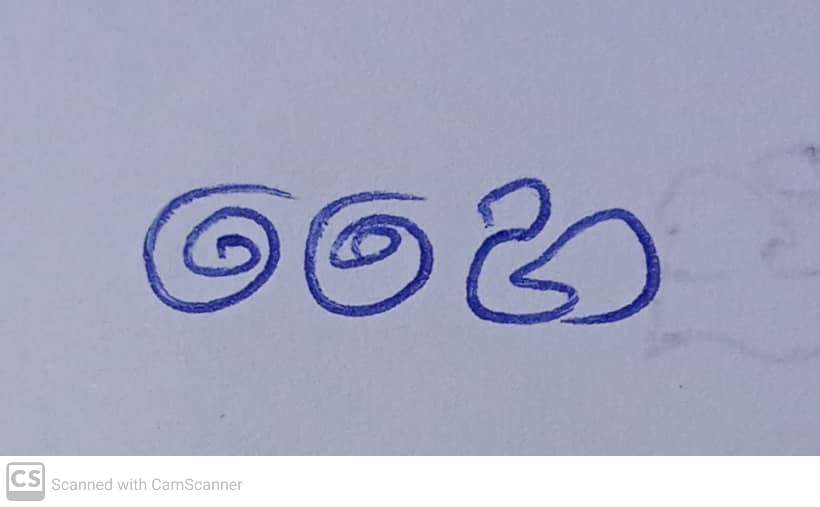 හෛ
Scanned with CamScanner